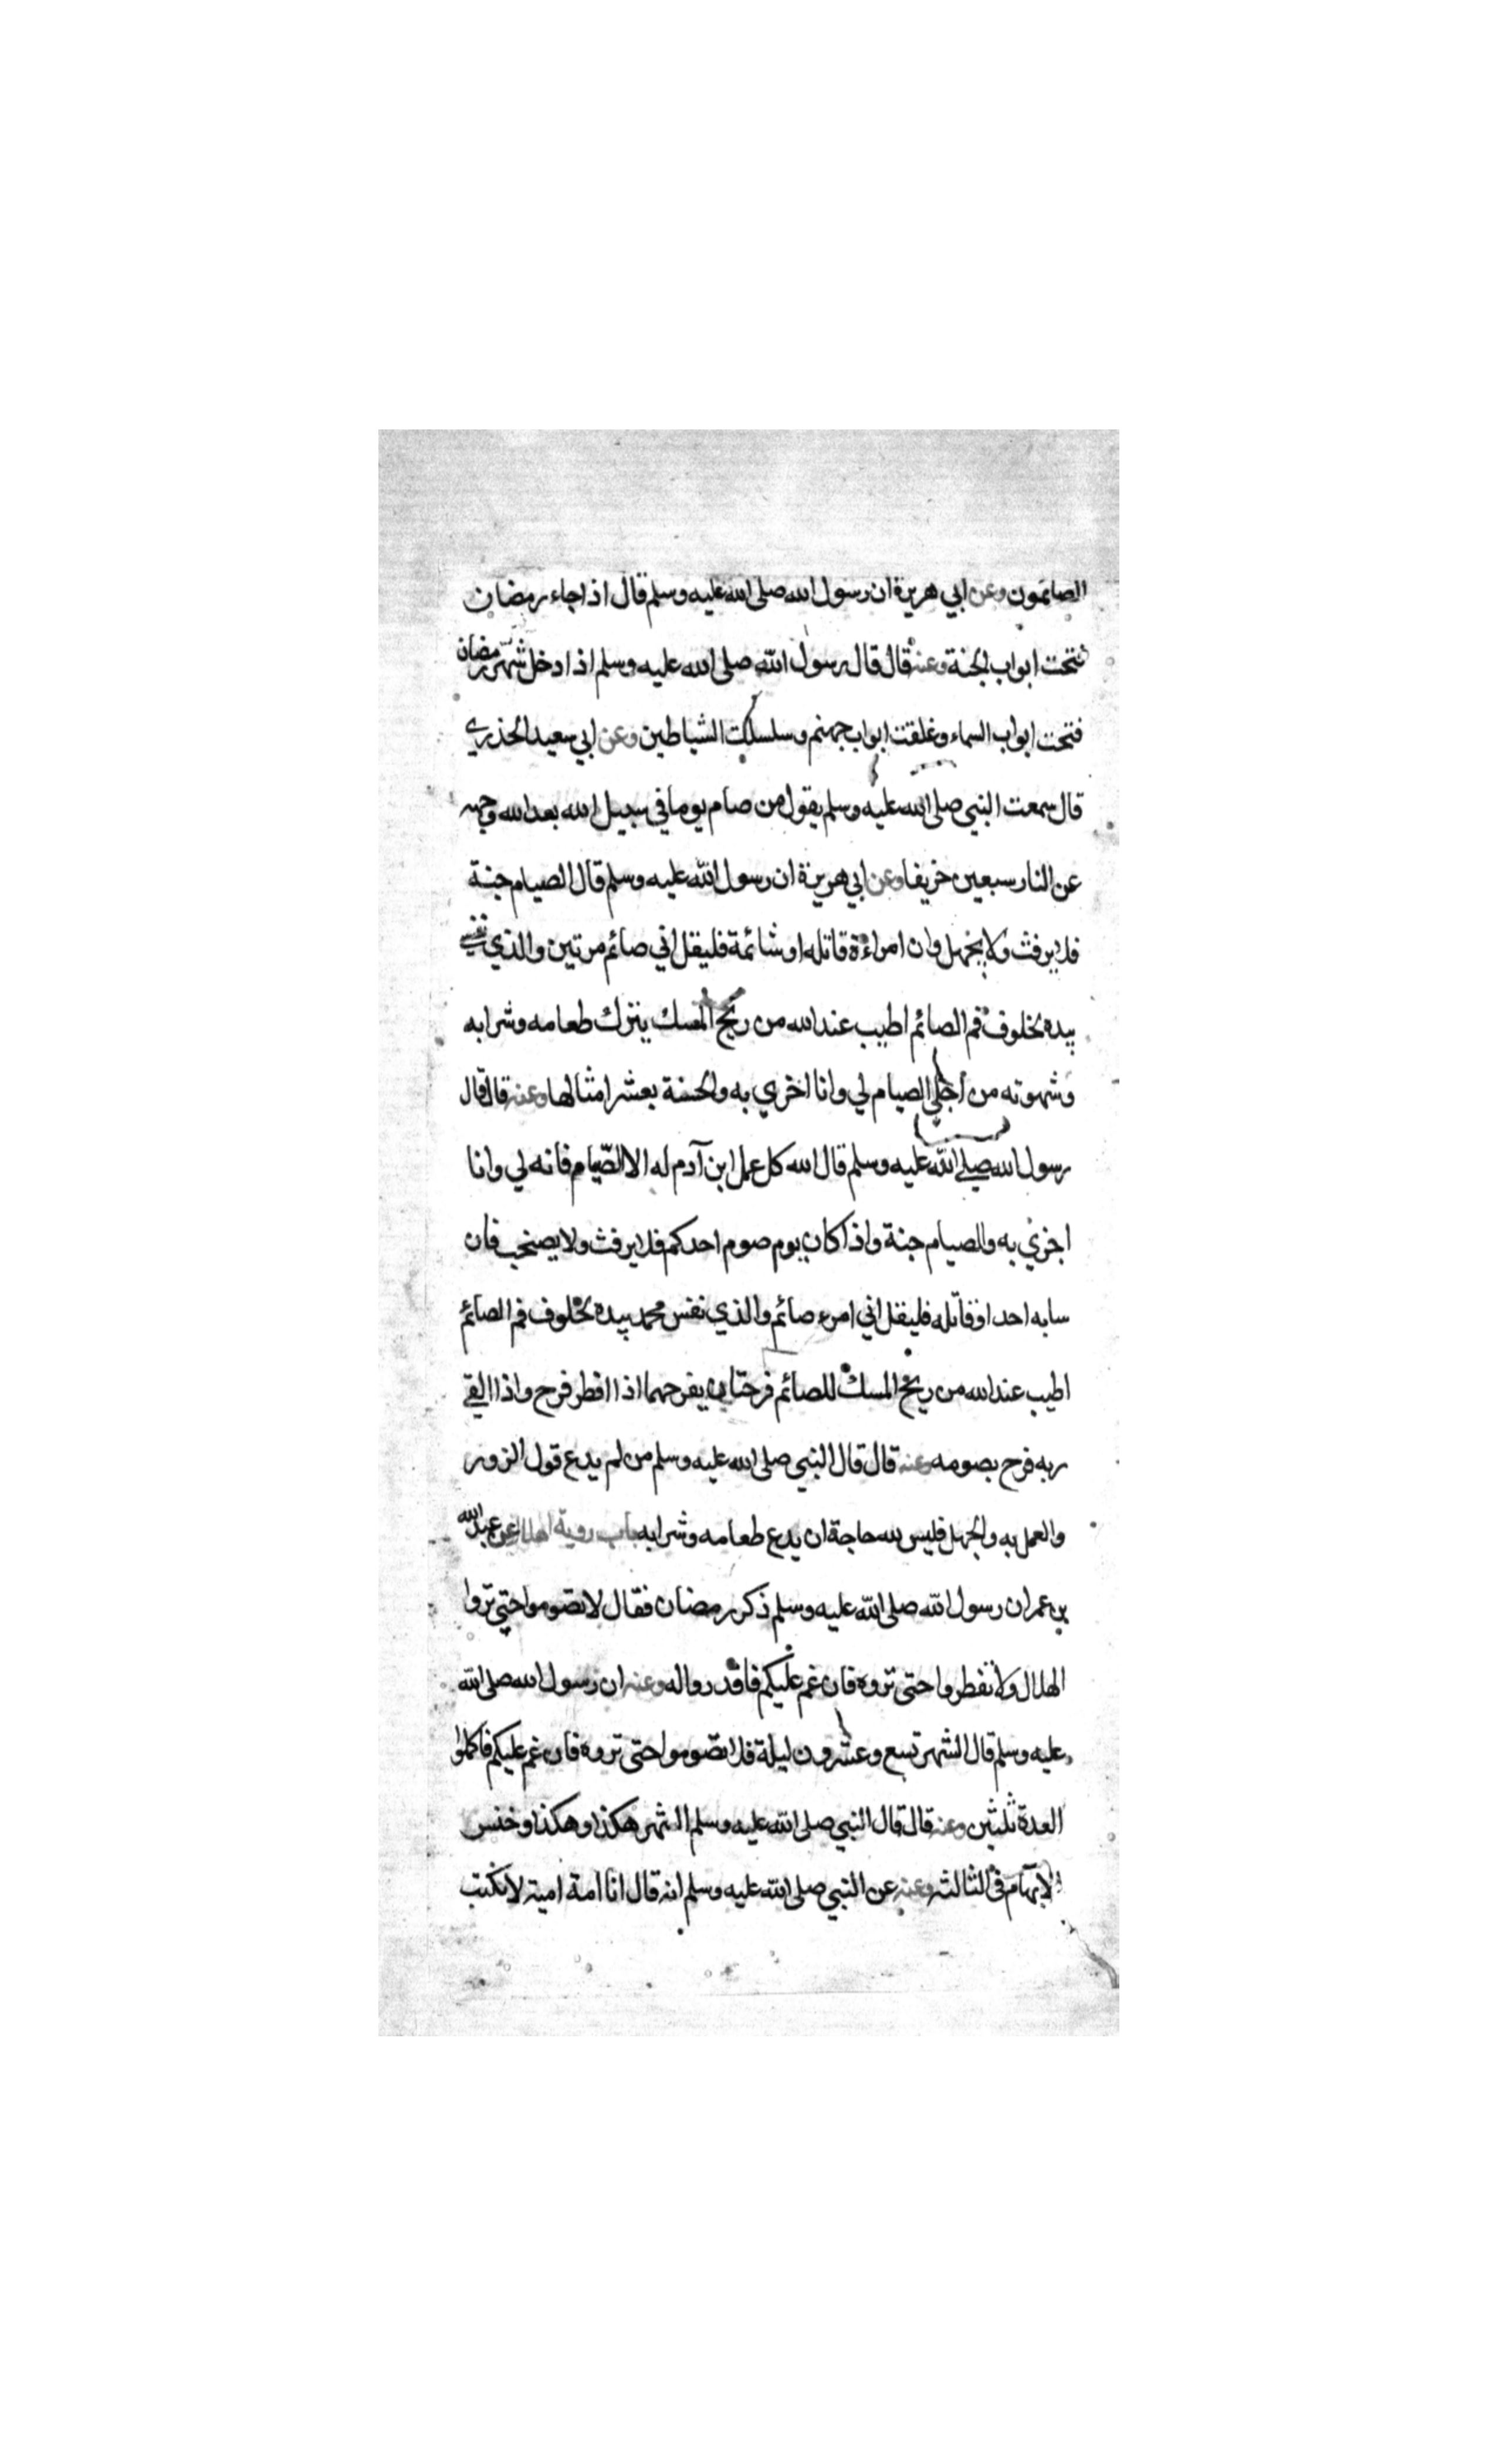 الصائمون وعن ابي هريرة ان رسول الله صلى الله عليه وسلم قال اذا جاء رمضان
فتحت ابواب الجنة وعنه قال قال رسول الله صلى الله عليه وسلم اذا دخل شهر رمضان
فتحت ابواب السماء وغلقت ابواب جهنم وسلسلت الشياطين وعن ابي سعيد الخذري
قال سمعت النبي صلى الله عليه وسلم يقول من صام يوما في سبيل الله بعد الله وجهه
عن النار سبعين خريفا وعن ابي هريرة ان رسول الله عليه وسلم قال الصيام جنة
فلا يرفث ولا يجهل وان امراءة قاتله او شائمة فليقل اني صائم مرتين والذي نفسي
بيده لخلوف فم الصائم اطيب عند الله من ريح المسك يترك طعامه وشرابه
وشهوته من أجلي الصيام لي وانا اخري به والحسنة بعشر امثالها وعنه قال قال
رسول الله صلى الله عليه وسلم قال الله كل عمل ابن آدم له الا الصّيام فانه لي وانا
اجزي به والصيام جنة واذا كان يوم صوم احدكم فلا يرفث ولا يصخب فان
سابه احد او قاتله فليقل اني امرء صائم والذي نفس محمد بيده لخلوف فم الصائم
اطيب عند الله من ريح المسك للصائم فرحتان يفرحهما اذا افطر فرح واذا القي
ربه فرح بصومه وعنه قال قال النبي صلى الله عليه وسلم من لم يدع قول الزور
والعمل به والجهل فليس لله حاجة ان يدع طعامه وشرابه باب روية الهلال عن عبد الله
بن عمر ان رسول الله صلى الله عليه وسلم ذكر رمضان فقال لا تصوموا حتي تروا
الهلال ولا تفطروا حتى تروه فان غم عليكم فاقدروا له وعنه ان رسول الله صلى الله
عليه وسلم قال الشهر تسع وعشرون ليلة فلا تصوموا حتى تروه فان غم عليكم فاكملوا
العدة ثلثين وعنه قال قال النبي صلى الله عليه وسلم الشهر هكذا وهكذا وخنس
الابهام في الثالثه وعنه عن النبي صلى الله عليه وسلم انه قال انا امة امية لا نكتب